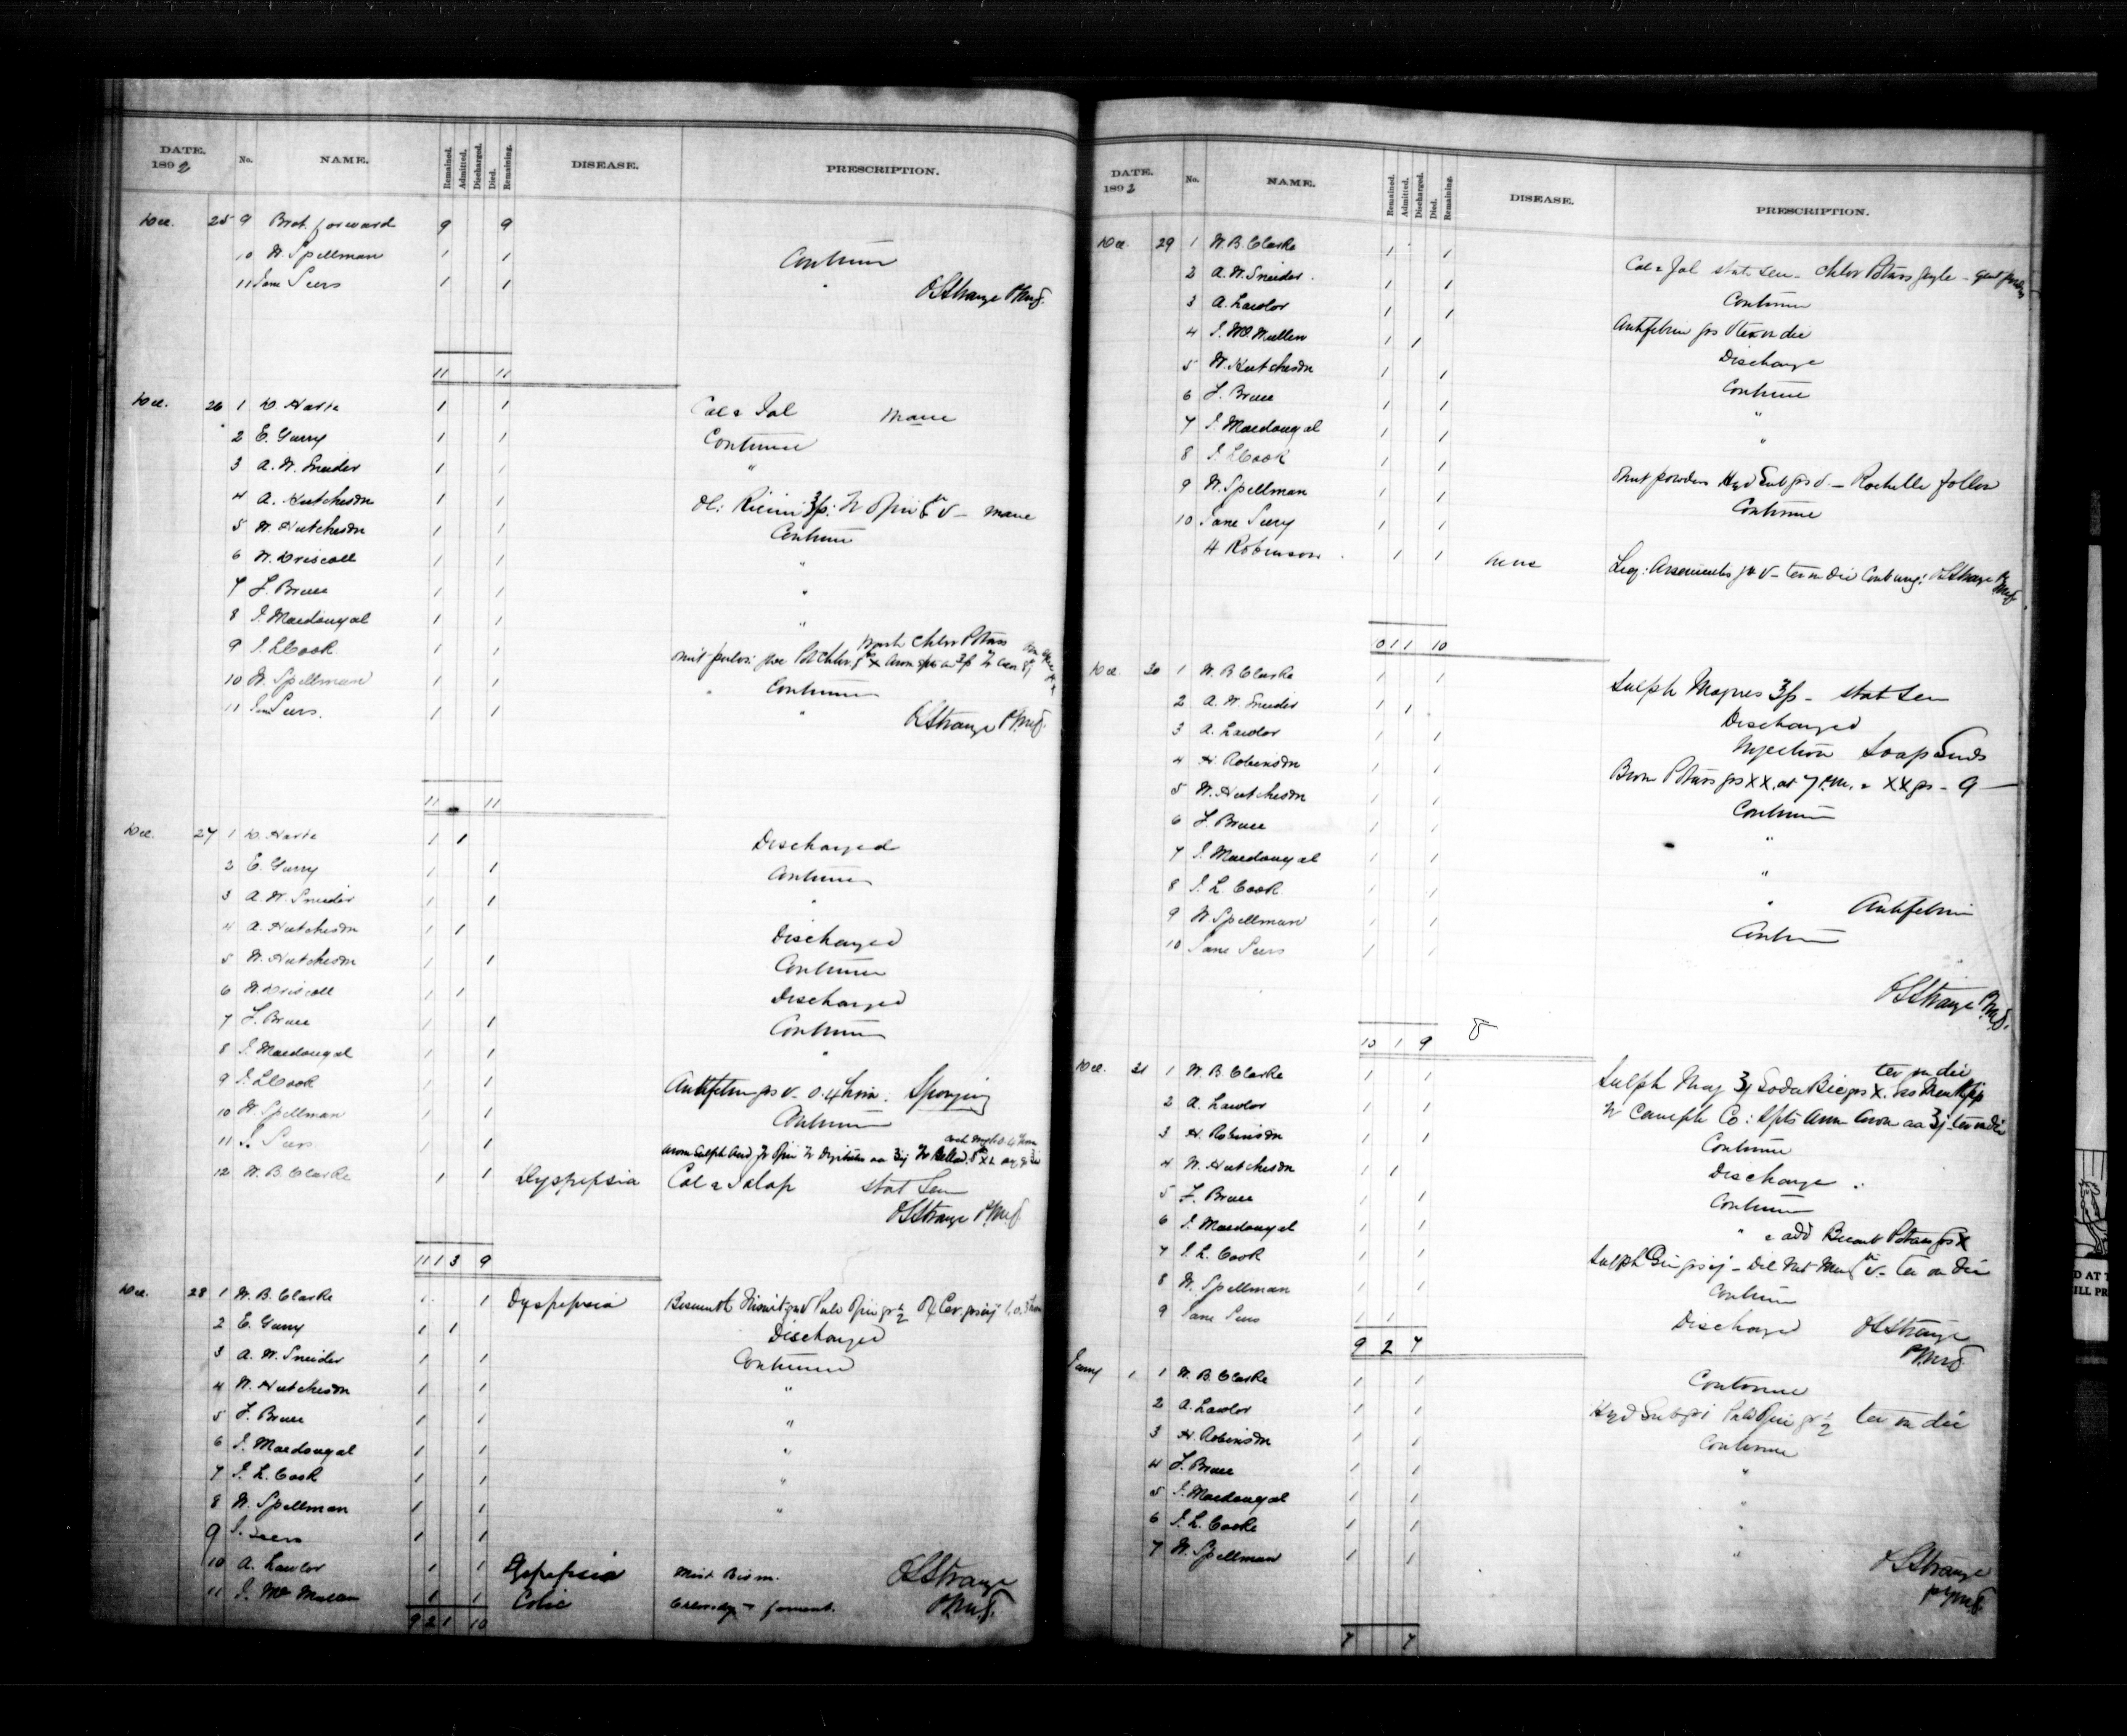 DATE. 1892 No. NAME. Remained. Admitted. Discharged. Died. Remaining. DISEASE. PRESCRIPTION.
Dec. 25 9 Brot. forward 9 9
10 W. Spellman 1 1 Continue
11 Jane Peers 1 1 "
OSStrange P.M.S.
11 11
Dec. 26 1 D. Harte 1 1 Cal & Jal mane
2 E. Garry 1 1 Continue
3 A. W. Sneider 1 1 "
4 A. Hutcheson 1 1 Ol: Ricini ʒfs: Tr Opii v - mane
5 W. Hutcheson 1 1 Continue
6 W. Driscoll 1 1 "
7 F. Bruce 1 1 "
8 J. Macdougal 1 1 "
9 J. L. Cook 1 1
10 W. Spellman 1 1 Continue
11 Jane Peers. 1 1 "
OSStrange P.M.S.
11 11
Dec. 27 1 D. Harte 1 1 Discharged
2 E. Garry 1 1 Continue
3 A. W. Sneider 1 1 "
4 A. Hutcheson 1 1 Discharged
5 W. Hutcheson 1 1 Continue
6 W. Driscoll 1 1 Discharged
7 F. Bruce 1 1 Continue
8 J. Macdougal 1 1 "
9 J. L. Cook 1 1 Antifebrin grs v - o. 4 hour. Sponging
10 W. Spellman 1 1 Continue
11 J. Peers 1 1
12 W. B. Clarke 1 1 Dyspepsia Cal & Jalap stat Sum
OSStrange P.M.S.
11 1 3 9
Dec. 28 1 W. B. Clarke 1 1 Dyspepsia
2 E. Garry 1 1 Discharged
3 A. W. Sneider 1 1 Continue
4 W. Hutcheson 1 1 "
5 F. Bruce 1 1 "
6 J. Macdougal 1 1 "
7 J. L. Cook 1 1 "
8 W. Spellman 1 1 "
9 J. Peers 1 1
10 A. Lawlor 1 1 Dyspepsia Mist Bism.
11 J. McMullen 1 1 Colic
OSStrange P.M.S.
9 2 1 10
DATE. 1892 No. NAME. Remained. Admitted. Discharged. Died. Remaining. DISEASE. PRESCRIPTION.
Dec. 29 1 W. B. Clarke 1 1 Cal & Jal stat Sum - Chlor Potass
2 A. W. Sneider. 1 1 Continue
3 A. Lawlor 1 1 Antifebrin grs v ter in die
4 J. McMullen 1 1 Discharge
5 W. Hutcheson 1 1 Continue
6 F. Bruce 1 1 "
7 J. Macdougal 1 1 "
8 J. L. Cook 1 1
9 W. Spellman 1 1 Continue
10 Jane Peers 1 1
H Robinson 1 1 Acne
OSStrange P.M.S.
10 1 1 10
Dec. 30 1 W. B Clarke 1 1 Sulph Magnes ʒfs - stat Sum
2 A. W. Sneider 1 1 Discharged
3 A. Lawlor 1 1 Injection Soap Suds
4 H. Robinson 1 1 Brom Potass grs XX. at 7 P.M. & XX grs - 9
5 W. Hutcheson 1 1 Continue
6 F. Bruce 1 1 "
7 J. Macdougal 1 1 "
8 J. L. Cook 1 1 " Antifebrin
9 W Spellman 1 1 Continue
10 Jane Peers 1 1 "
OSStrange P.M.S.
10 1 9
Dec. 31 1 W. B. Clarke 1 1 ter in die
2 A. Lawlor 1 1
3 H. Robinson 1 1 Continue
4 W. Hutcheson 1 1 Discharge
5 F. Bruce 1 1 Continue
6 J. Macdougal 1 1 " & add Bicarb Potass grs X
7 J. L. Cook 1 1
8 W. Spellman 1 1 Continue
9 Jane Peers 1 1 Discharged
OSStrange P.M.S.
9 2 7
Jany 1 1 W. B. Clarke 1 1 Continue
2 A. Lawlor 1 1 Hyd Sub gr i Pulv Opii gr ½ ter in die
3 H. Robinson 1 1 Continue
4 F. Bruce 1 1 "
5 J. Macdougal 1 1 "
6 J. L. Cooke 1 1 "
7 W. Spellman 1 1 "
OSStrange P.M.S.
7 7